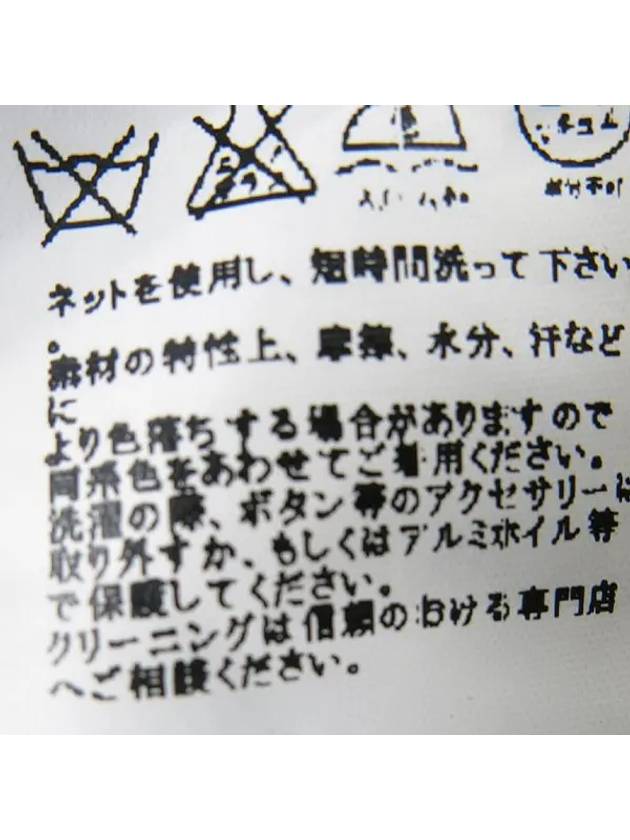 ネットを使用し、短時間洗って下さい
。
素材の特性上、摩擦、水分、汗など
に
より色落ちする場合がありますので
同系色をあわせてご着用ください。
洗濯の際、ボタン等のアクセサリーは
取り外すか、もしくはアルミホイル等
で保護してください。
クリーニングは信頼のおける専門店
へご相談ください。